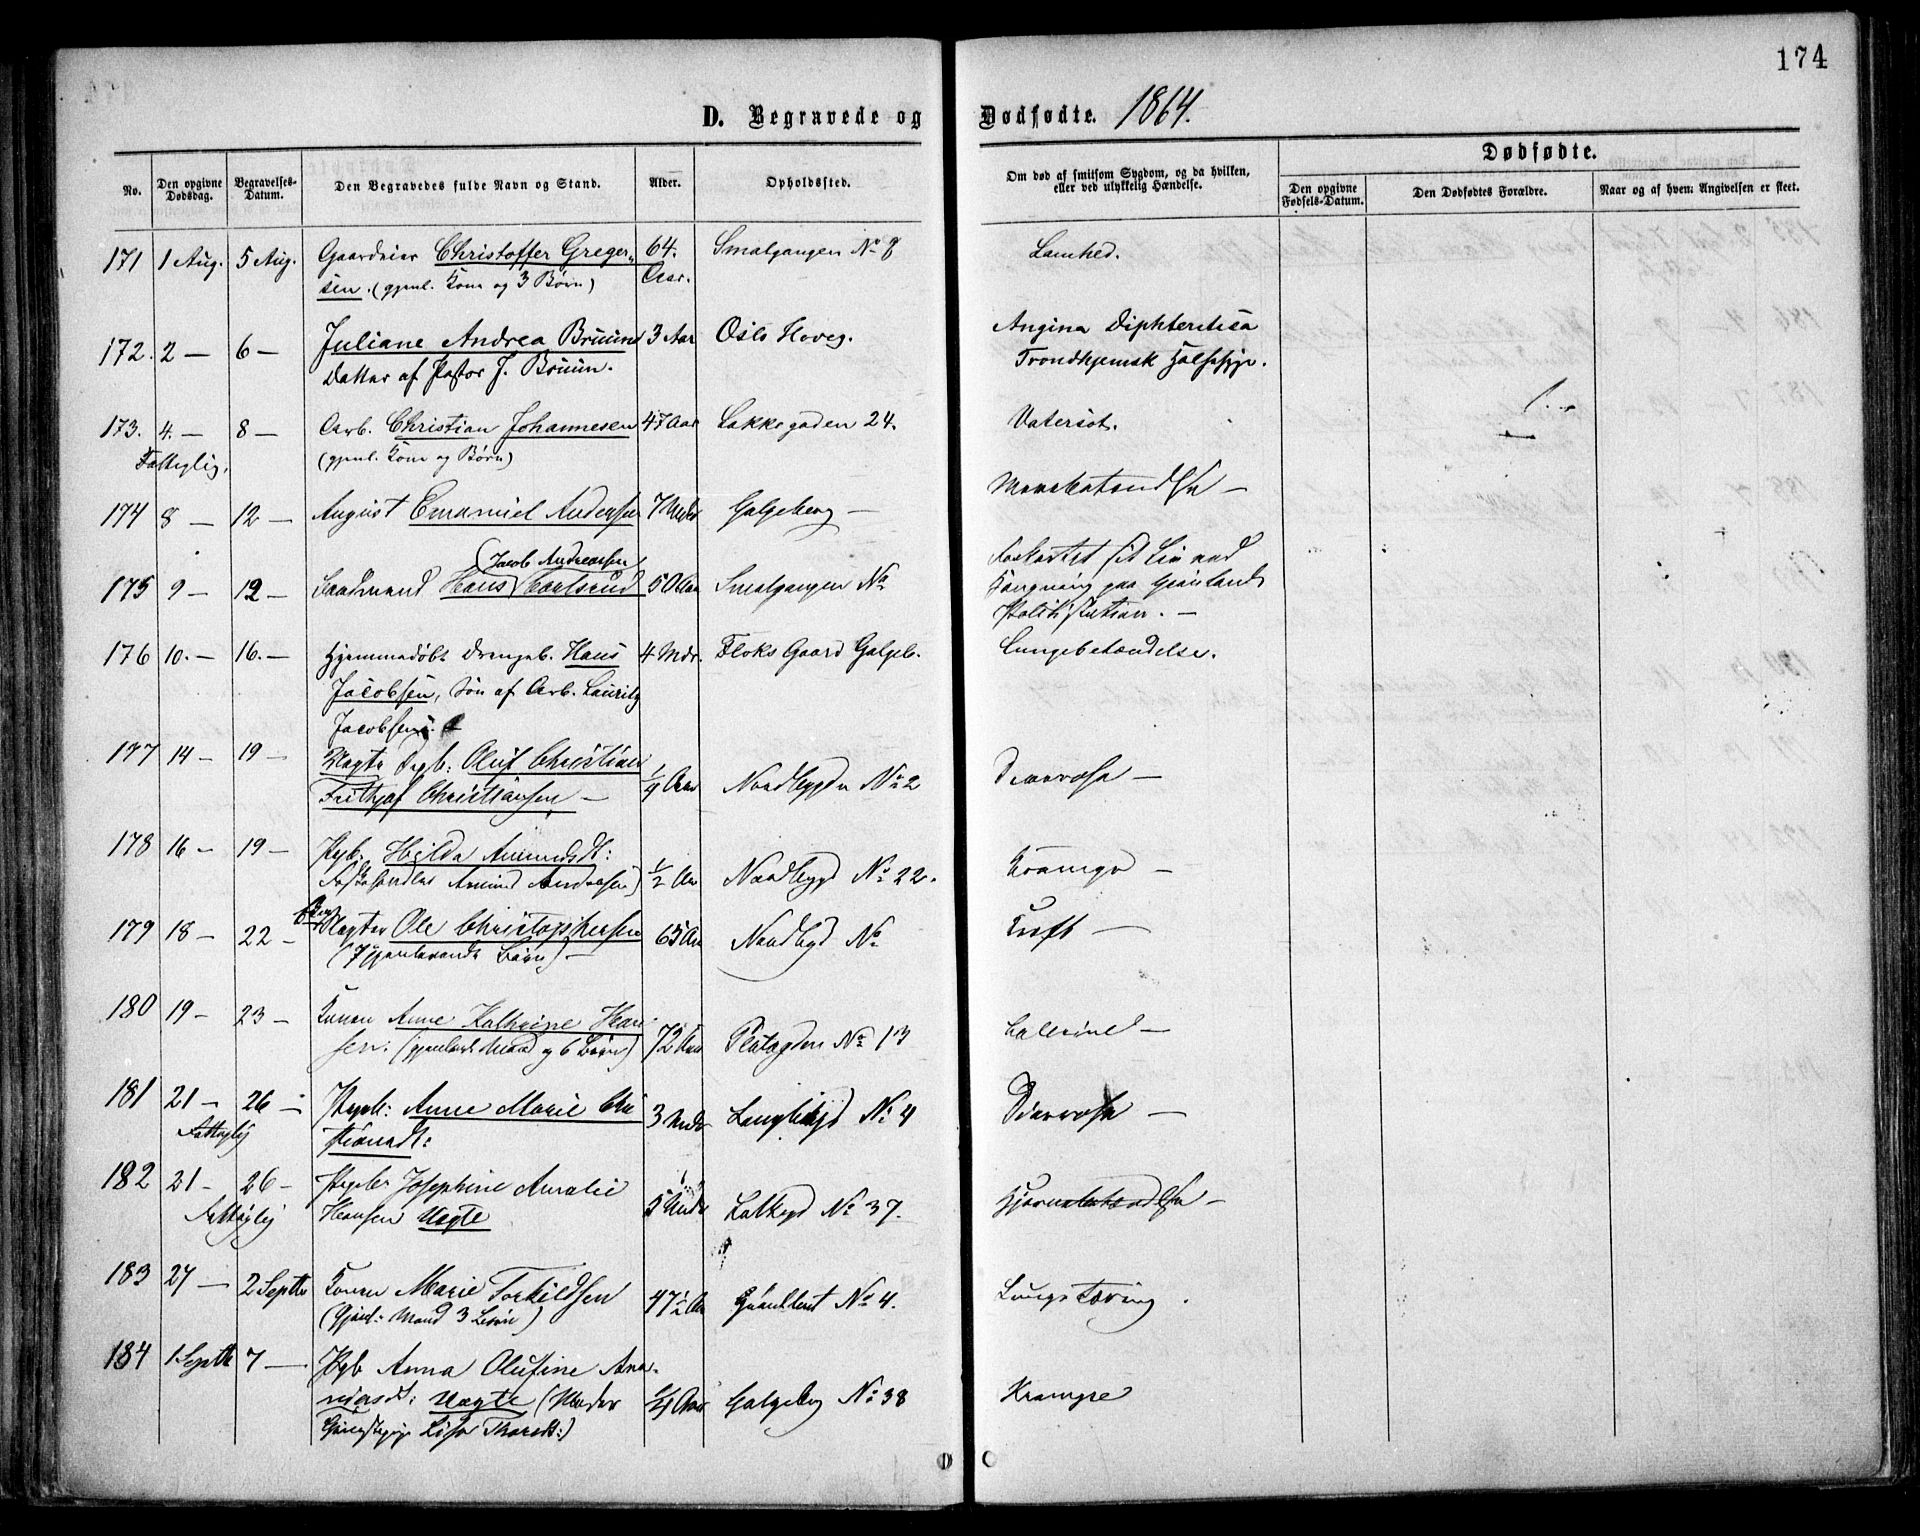 174
D. Begravede og Dødfødte. 1864.
No.
Den opgivne Dødsdag.
Begravelses-Datum.
Den Begravedes fulde Navn og Stand.
Alder.
Opholdssted.
Om død af smitsom Sygdom, og da hvilken,
eller ved ulykkelig Hændelse.
Dødfødte.
Den opgivne Fødsels-Datum.
Den Dødfødtes Forældre.
Naar og af hvem Angivelsen er skeet.
171 1 Aug. 5 Aug. Gaardeier Christoffer Greger- 64. Smalgangen No 8 Lamhed.
sen. (gjenl. Kone og 3 Børn) Aar.
172. 2 — 6 — Juliane Andrea Bruun 3 Aar Oslo Hoveg. Angina Diphteritisa
Datter af Pastor J. Bruun. Trondhjemsk Halssyge.
173. 4. — 8 — Arb. Christian Johannesen 47 Aar Lakkegaden 24. Vatersot.
Fattiglig. (gjenl. Kone og Børn)
174 8 — 12 — August Emanuel Andersen 7 Galgeberg —
(Jacob Andreassen
175 9 — 12 — Hans 50 Aar Smalgangen No Forkortet sit Liv ved
Hængning paa Grønlands
Politistation. —
176 10. — 16. — Hjemmedøbt Drengeb. Hans 4 Mdr. Floks Gaard Galgeb. Lungebetændelse.
Jacobsen, Søn af Arb. Lauritz
Jacobsen.
177 14 — 19 — Oluf Christian
Frithjof Christiansen — 1/4 Aar Nordbygden No 2 Diarrosa —
178 16 — 19 — Pgb. Hilda Amundsdt:
Amund Andresen) 1/2 Aar Nordbygd No 22. Krampe
179 18 — 22 — Ole Christophersen 65 Aar Nordbygd No Kræft —
(7 gjenlevende Børn) —
180 19 — 23 — Konen Anne Kathrine Han-
sen: Mand og 6 Børn) 72 Aar Platogden No 13
181 21 — 26 — Pigeb: Anne Marie Chri 3 Langbygd No 4 Diarrosa —
Fattiglig stiansdt:
182 21 — 26 — Pigeb Josephine Amalie
Fattiglig Hansen Uægte 5 Lakkegd No 37. Hjernebetændelse —
183 27 — 2 Septbr Konen Marie Torkildsen 47 1/2 Aar Grønlleret No 4. Lungetæring.
(Gjenl: Mand 3 Børn)
184 1 Septb 7 — Pgb Anna Olufine Ana-
niasdt: Uægte (Moder 1/4 Aar Galgebg No 38 Krampe